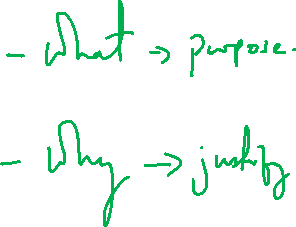 - What → purpose.
- Why → justify